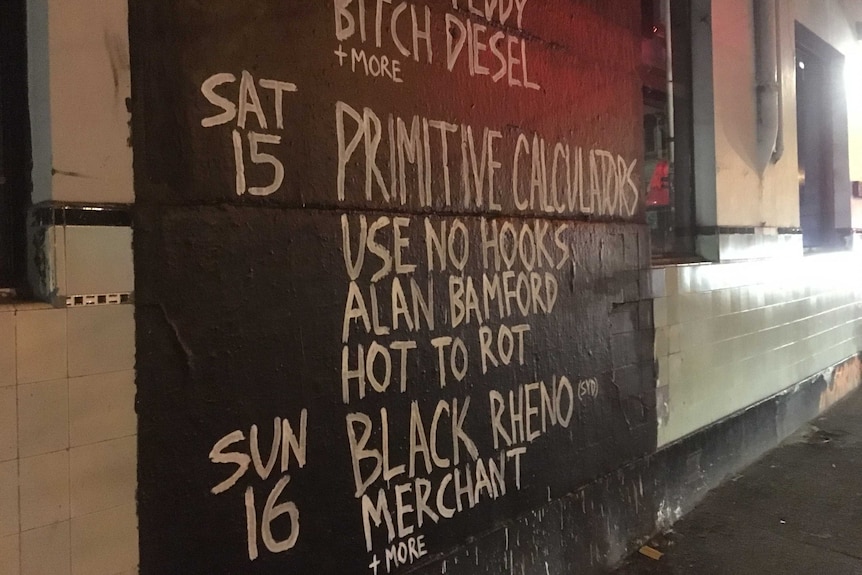 BITCH DIESEL
+ MORE
SAT
15
PRIMITIVE CALCULATORS
USE NO HOOKS
ALAN BAMFORD
HOT TO ROT
SUN
16
BLACK RHENO (SYD)
MERCHANT
+ MORE